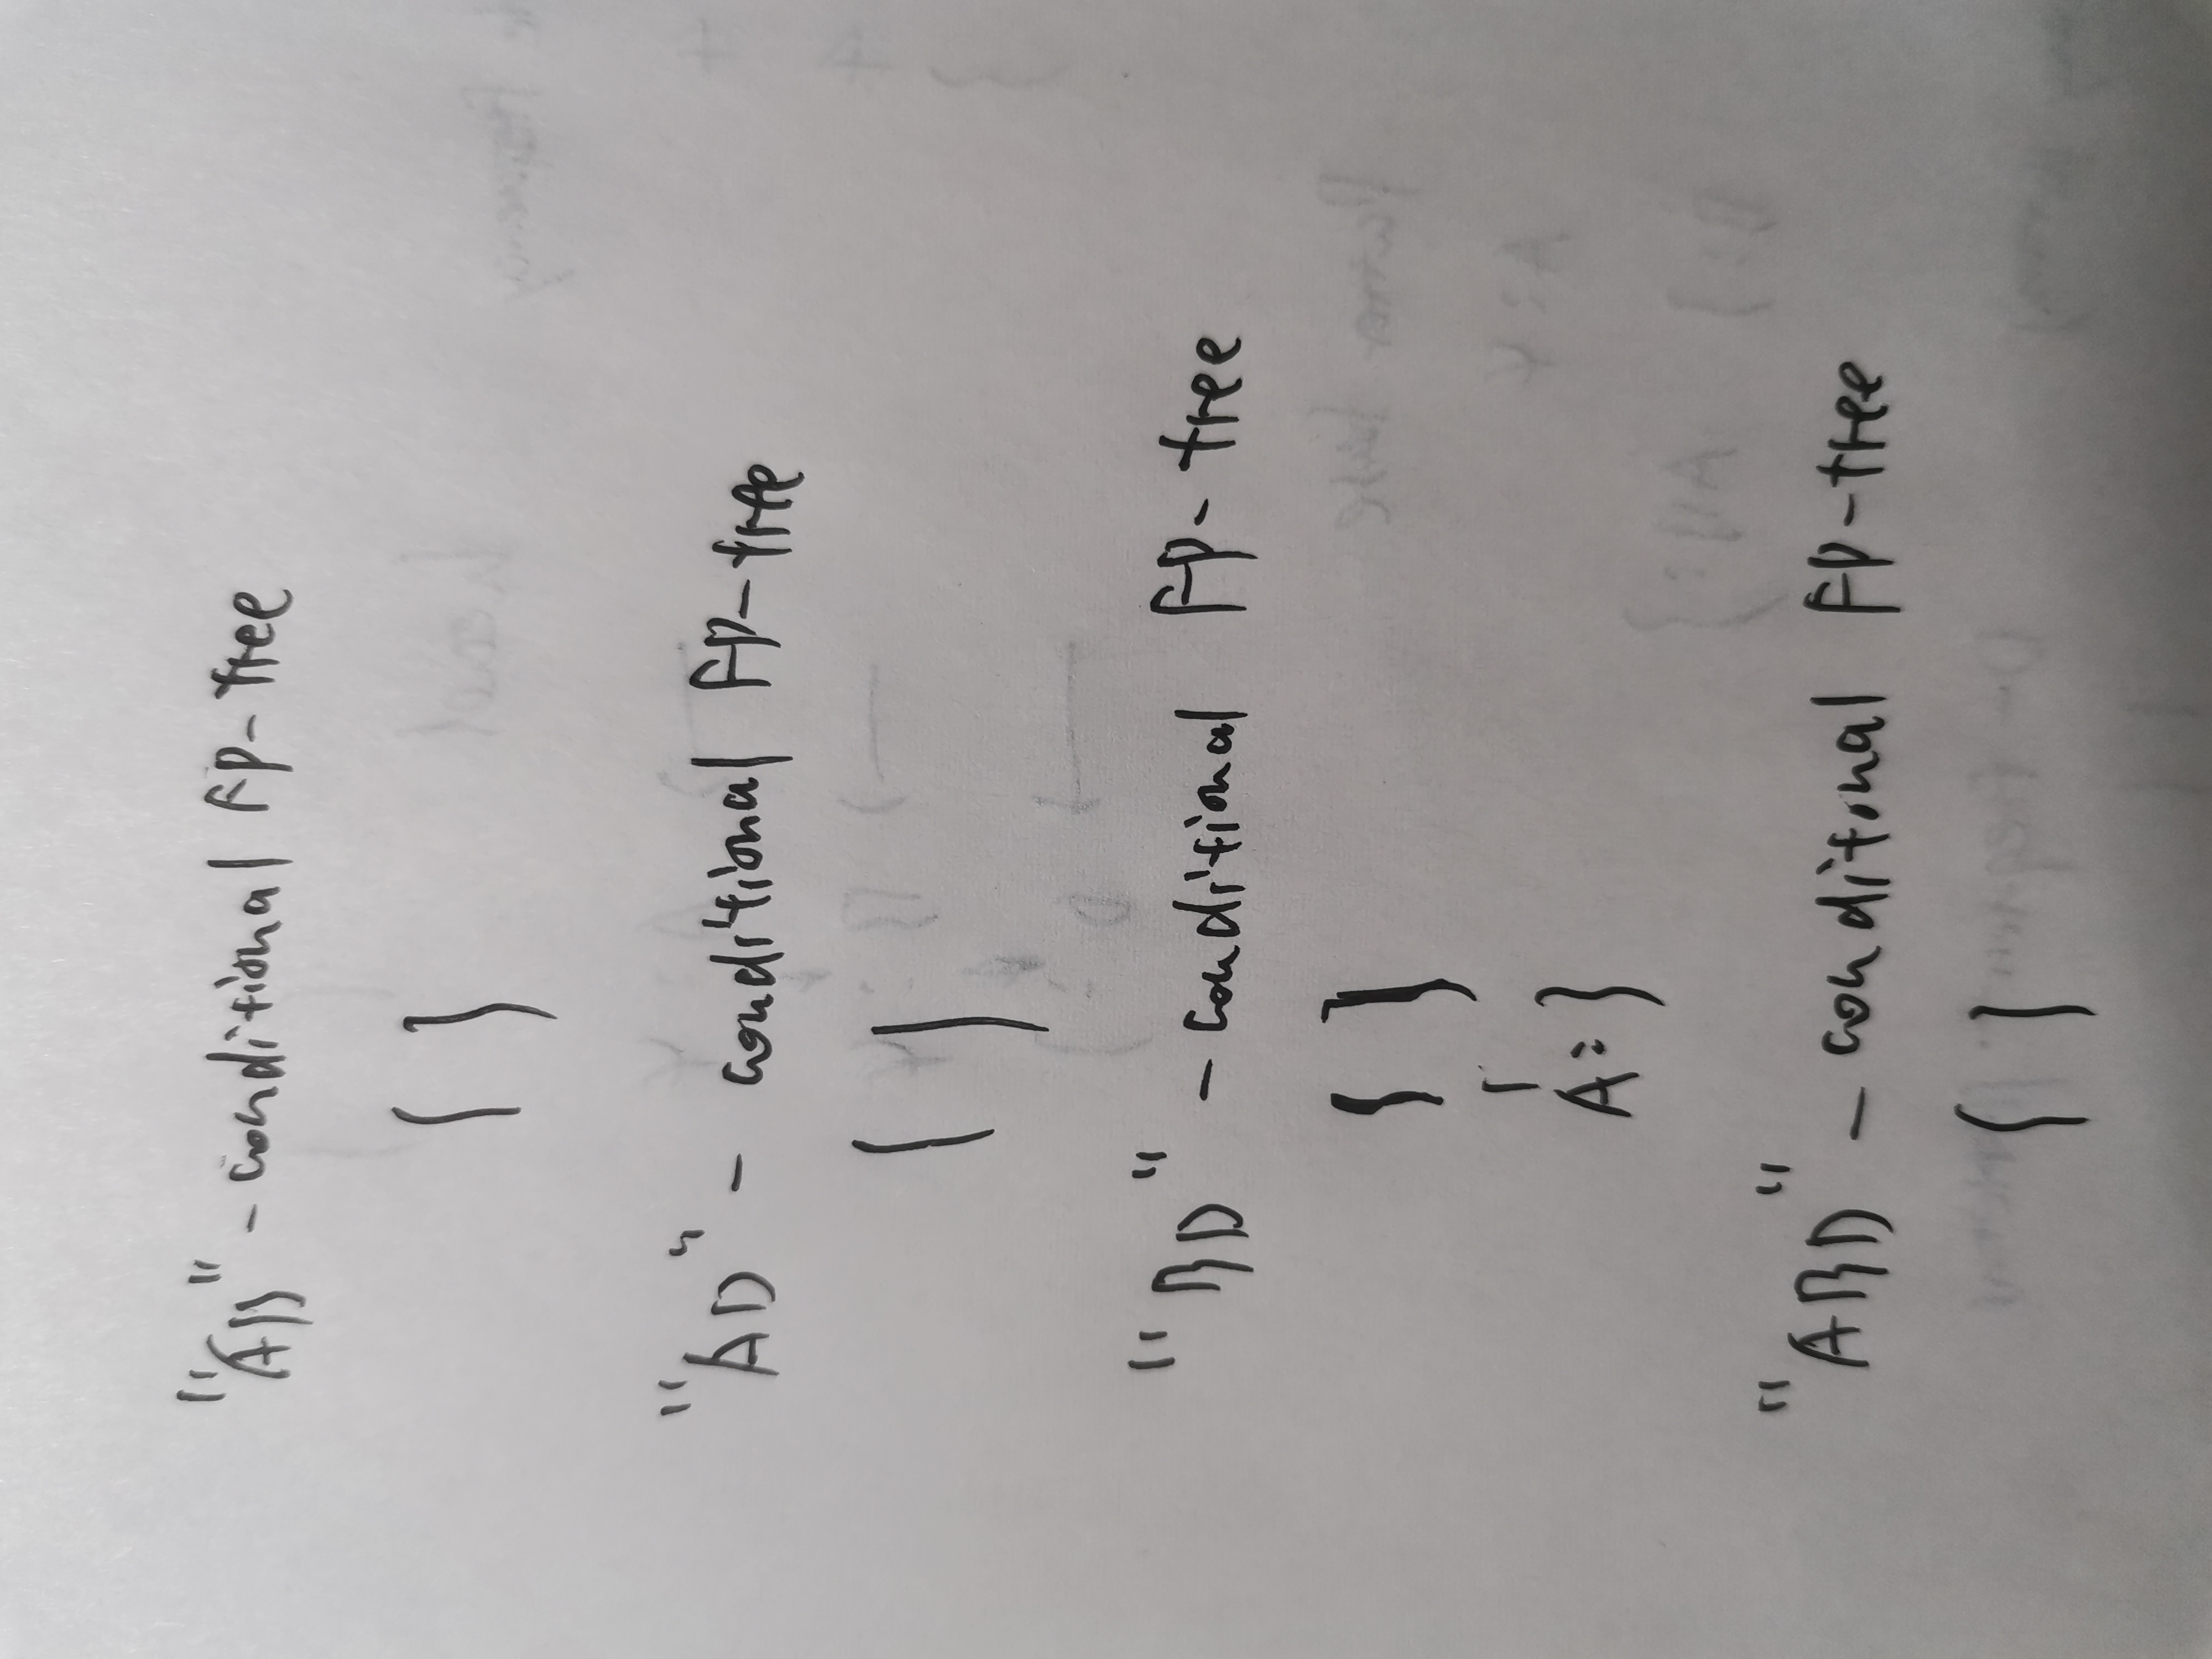 "AB" - conditional FP-tree
{ }
"AD" - conditional FP-tree
{ }
"BD" - conditional FP-tree
{ }
A:3
"ABD" - conditional FP-tree
{ }